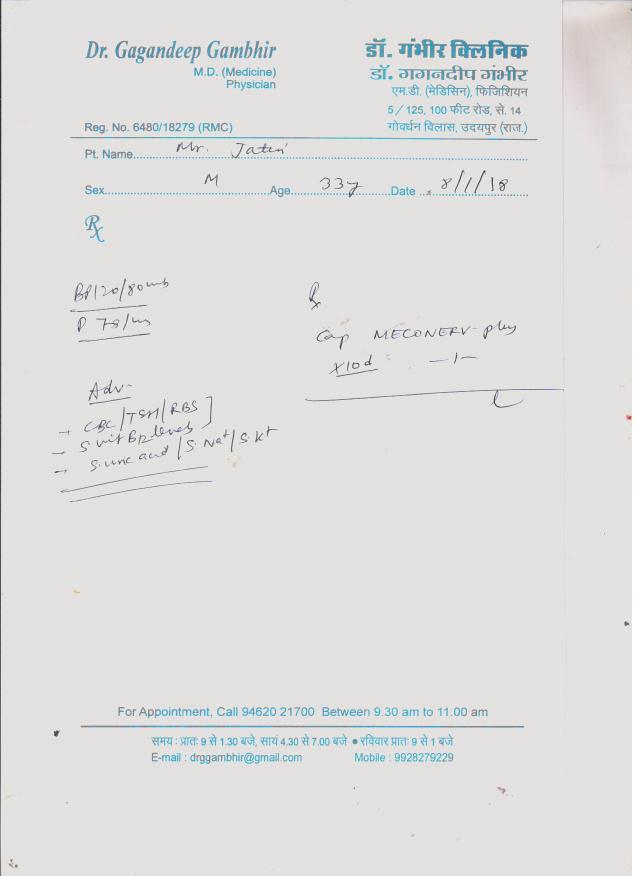 Dr. Gagandeep Gambhir
M.D. (Medicine)
Physician
Reg. No. 6480/18279 (RMC)
डॉ. गंभीर क्लिनिक
डॉ. गगनदीप गंभीर
एम.डी. (मेडिसिन), फिजिशियन
5/125, 100 फीट रोड, से. 14
गोवर्धन विलास, उदयपुर (राज.)
Pt. Name Mr. Jatin
Sex M Age 33y Date 8/1/18
Rx
BP 120/80
P 78/m
Adv-
→ CBC/TSH/RBS
→ S. vit B12 levels
→ S. uric acid / S. Na+/ S. K+
Rx
Cap MECONERV-plus
x10d -1-
For Appointment, Call 94620 21700 Between 9.30 am to 11.00 am
समय : प्रातः 9 से 1.30 बजे, सायं 4.30 से 7.00 बजे ● रविवार प्रातः 9 से 1 बजे
E-mail : drggambhir@gmail.com Mobile : 9928279229